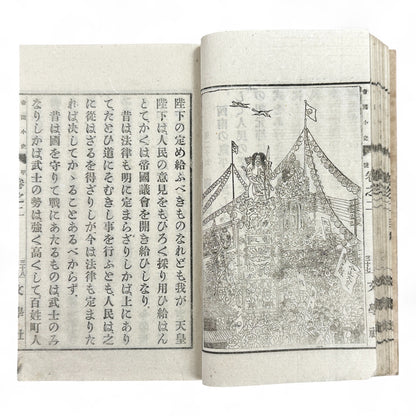 卷之二
文學社
陛下の定め給ふべきものなれども我が 天皇
陛下は人民の意見をもひろく採り用ひ給はん
とてかくは帝國議會を開き給ひしなり。
昔は法律も明に定まらざりしかば上にあり
てたとひ道にそむきし事を行ふとも、人民は之
に從はざるを得ざりしが今は法律も定まりた
れば決してかゝることあるべからず。
昔は國を守りて戰にあたるものは武士のみ
なりしかば武士の勢は強く高くして百姓町人
帝國小史
卷之二
文學社